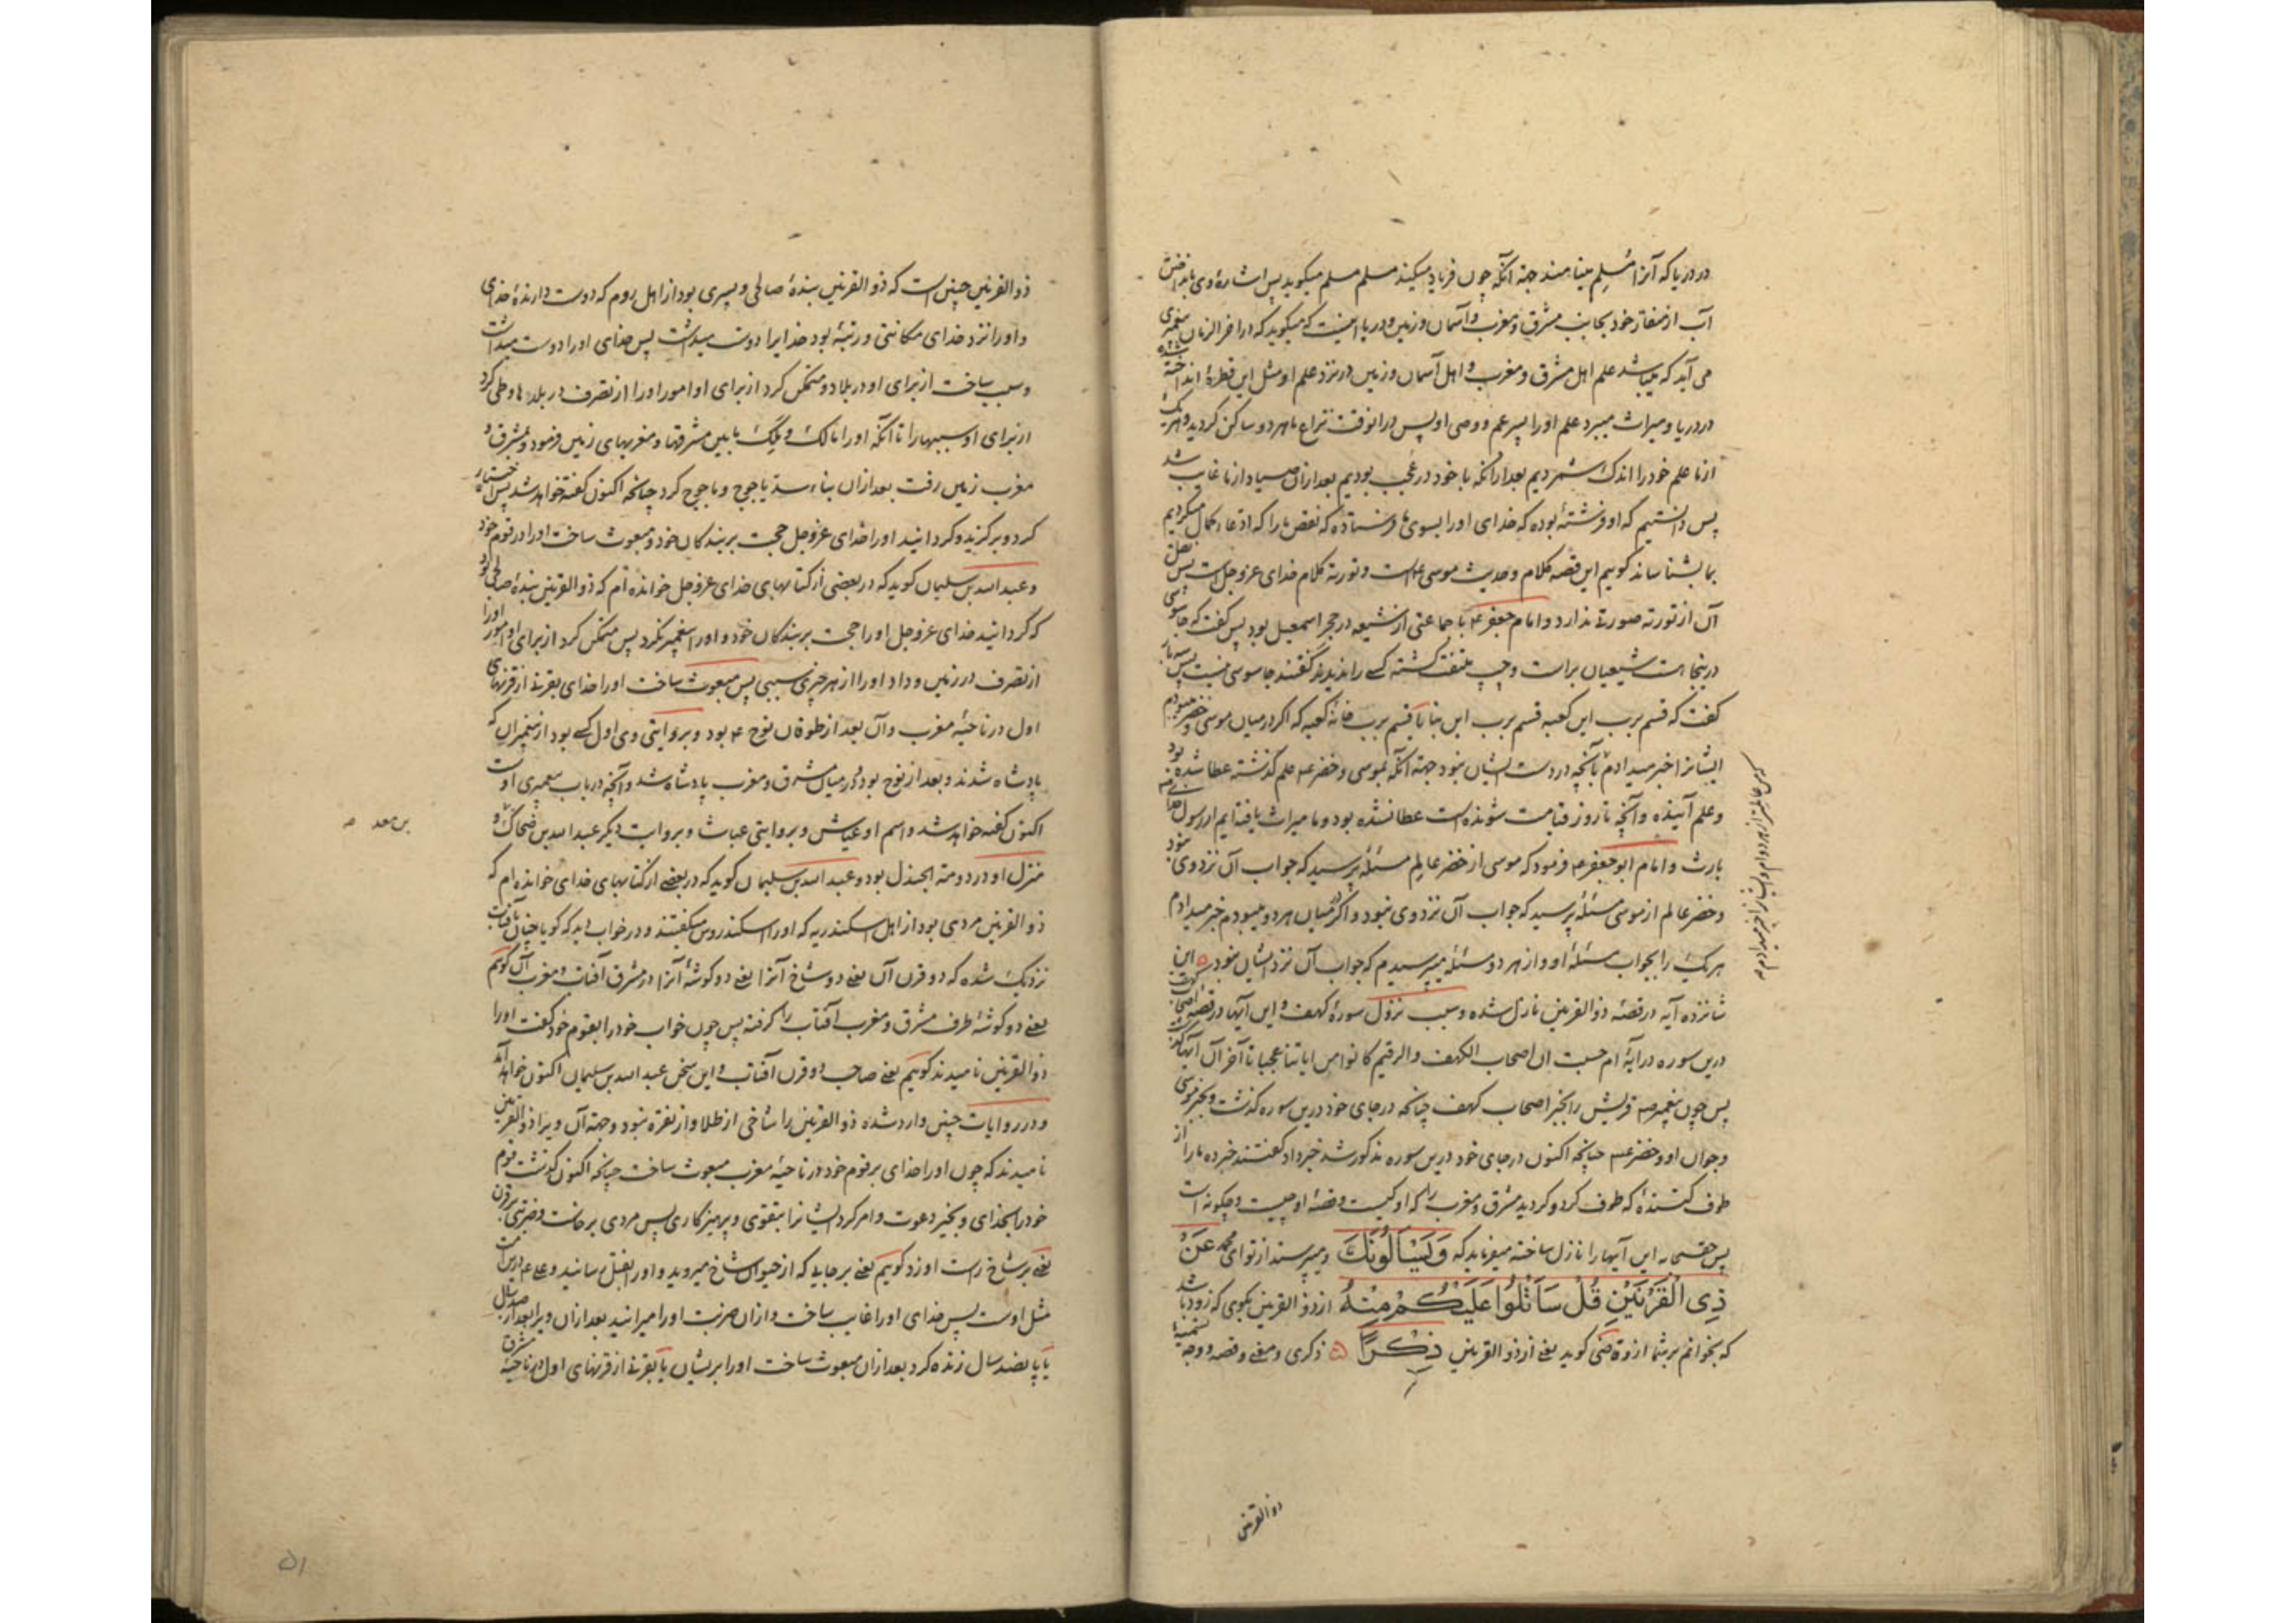 در دریا که آنرا مُسلِم مینامند جهة آنکه چون فریاد میکند مسلم مسلم میکوید پس اشارهٔ وی بانداختن
آب از منقار خود بجانب مشرق و مغرب و آسمان و زمین و دریا اینست که میکوید که در آخر الزمان پیغمبری
می آید که میباشد علم اهل مشرق و مغرب و اهل آسمان و زمین در نزد علم او مثل این قطرهٔ انداخته شده
در دریا و میراث میبرد علم او را پسر عم و وصی او پس در انوقت نزاع ما هر دو ساکن کردید و هر یک
از ما علم خود را اندک شمردیم بعد از انکه با خود در عُجب بودیم بعد ازان صیاد از ما غایب شد
پس دانستیم که او فرشتهٔ بوده که خدای او را بسوی ما فرستاده که نقص ما را که ادعاء کمال میکردیم
بما بشناساند کوییم این قصه کلام و حدیث موسی ع است و توریة کلام خدای عزوجل است پس نقل
آن از توریة صورت ندارد و امام جعفر ع با جماعتی از شیعه در حجر اسمعیل بود پس کفت که جاسوسی
درینجا هست شیعیان براست و چپ ملتفت کشته کسے را ندیدند کفتند جاسوسی نیست پس سه بار
کفت که قسم برب این کعبه قسم برب این بنا یا قسم برب خانهٔ کعبه که اکر در میان موسی و خضر میبودم
ایشانرا خبر میدادم بآنچه در دست ایشان نبود جهة آنکه بموسی و خضر ع علم کذشته عطا شده بود
و علم آینده و آنچه تا روز قیامت شونده است عطا نشده بود و ما میراث یافته ایم از رسول خدا ص
بارث و امام ابو جعفر ع فرمود که موسی از خضر عالم مسئلهٔ پرسید که جواب آن نزد وی نبود
و خضر عالم از موسی مسئلهٔ پرسید که جواب آن نزد وی نبود و اکر در میان هر دو میبودم خبر میدادم
هر یک را بجواب مسئلهٔ او و از هر دو مسئلهٔ میپرسیدم که جواب آن نزد ایشان نبود ۵ این
شانزده آیه در قصهٔ ذو القرنین نازل شده و سبب نزول سورهٔ کهف و این آیها در قصهٔ اصحاب کهف
درین سوره در آیهٔ ام حسبت ان اصحاب الکهف و الرقیم کانوا من ایاتنا عجبا تا آخر آن آیها کذشت
پس چون پیغمبر ص قریش را بخبر اصحاب کهف چنانچه در جای خود درین سوره کذشت و بخبر موسی
و جوان او و خضر ع چنانچه اکنون در جای خود درین سوره مذکور شد خبر داد کفتند خبر ده ما را از
طوف کنندهٔ که طوف کرد و کردید مشرق و مغرب را که او کیست و قصهٔ او چیست و چکونه است
پس حقسبحانه این آیها را نازل ساخته میفرماید که وَيَسْأَلُونَكَ و میپرسند از تو ای محمد عَنْ
ذِی الْقَرْنَیْنِ قُلْ سَأَتْلُوا عَلَیْکُمْ مِنْهُ از ذو القرنین بکوی که زود باشد
که بخوانم بر شما از وی کوید یعنے از ذو القرنین ذِکْرًا ۵ ذکری و معنے و قصه و وجه تسمیهٔ
ذو القرنین
ذو القرنین چنین است که ذو القرنین بندهٔ صالحی و پسری بود از اهل روم که دوست دارندهٔ خدای
و او را نزد خدای مکانتی و رتبهٔ بود خدایرا دوست میداشت پس خدای او را دوست میداشت
و سبب ساخت از برای او در بلاد و متمکن کرد از برای او امور او را از تصرف در بلدها و طی کرد
از برای او سببها را تا آنکه او را مالک و مَلِک ما بین مشرقها و مغربهای زمین فرمود و بمشرق و
مغرب زمین رفت بعد ازان بناء سد یاجوج و ماجوج کرد چنانچه اکنون کفته خواهد شد پس اختیار
کرد و برکزید و کردانید او را خدای عزوجل حجت بر بندکان خود و مبعوث ساخت او را در قوم خود
و عبد الله بن سلیمان کوید که در بعضی از کتابهای خدای عزوجل خوانده ام که ذو القرنین بندهٔ صالحی بود
که کردانید خدای عزوجل او را حجت بر بندکان خود و او را پیغمبر نکرد پس متمکن کرد از برای او امور او را
از تصرف در زمین و داد او را از هر چیزی سببی پس مبعوث ساخت او را خدای بقرنے از قرنهای
اول در ناحیهٔ مغرب و آن بعد از طوفان نوح ع بود و بروایتی وی اول کسے بود از پیغمبران که
پادشاه شدند و بعد از نوح بود و در میان مشرق و مغرب پادشاه شد و آنچه در باب پیغمبری اوست
اکنون کفته خواهد شد و اسم او عیاش و بروایتی عباث و بروایت دیکر عبد الله بن ضحاک و
بن معد ص
منزل او در دومة الجندل بود و عبد الله بن سلیمان کوید که در بعضے از کتابهای خدای خوانده ام که
ذو القرنین مردی بود از اهل اسکندریه که او را اسکندروس میکفتند و در خواب دید که کویا چنان بآفتاب
نزدیک شده که دو قرن آن یعنے دو شاخ آنرا یعنے دو کوشهٔ آنرا در مشرق آفتاب و مغرب آن کوییم
یعنے دو کوشهٔ طرف مشرق و مغرب آفتاب را کرفته پس چون خواب خود را بقوم خود کفت او را
ذو القرنین نامیدند کوییم یعنے صاحب دو قرن آفتاب و این سخن عبد الله بن سلیمان اکنون خواهد آمد
و در روایات چنین وارد شده ذو القرنین را شاخی از طلا و از نقره نبود و جهة آن ویرا ذو القرنین
نامیدند که چون او را خدای بر قوم خود در ناحیهٔ مغرب مبعوث ساخت چنانچه اکنون کذشت قوم
خود را بخدای و بخیر دعوت و امر کرد ایشانرا بتقوی و پرهیزکاری پس مردی برخاست و ضربتی بر قرن
یعنے بر شاخ راست او زد کوییم یعنے بر جایے که از حیوان شاخ میروید و او را بقتل رسانید و علی ع درین امت
مثل اوست پس خدای او را غایب ساخت و ازان ضربت او را میرانید بعد ازان ویرا بعد از صد سال
یا پانصد سال زنده کرد بعد ازان مبعوث ساخت او را بر ایشان یا بقرنے از قرنهای اول در ناحیهٔ مشرق
۵۱